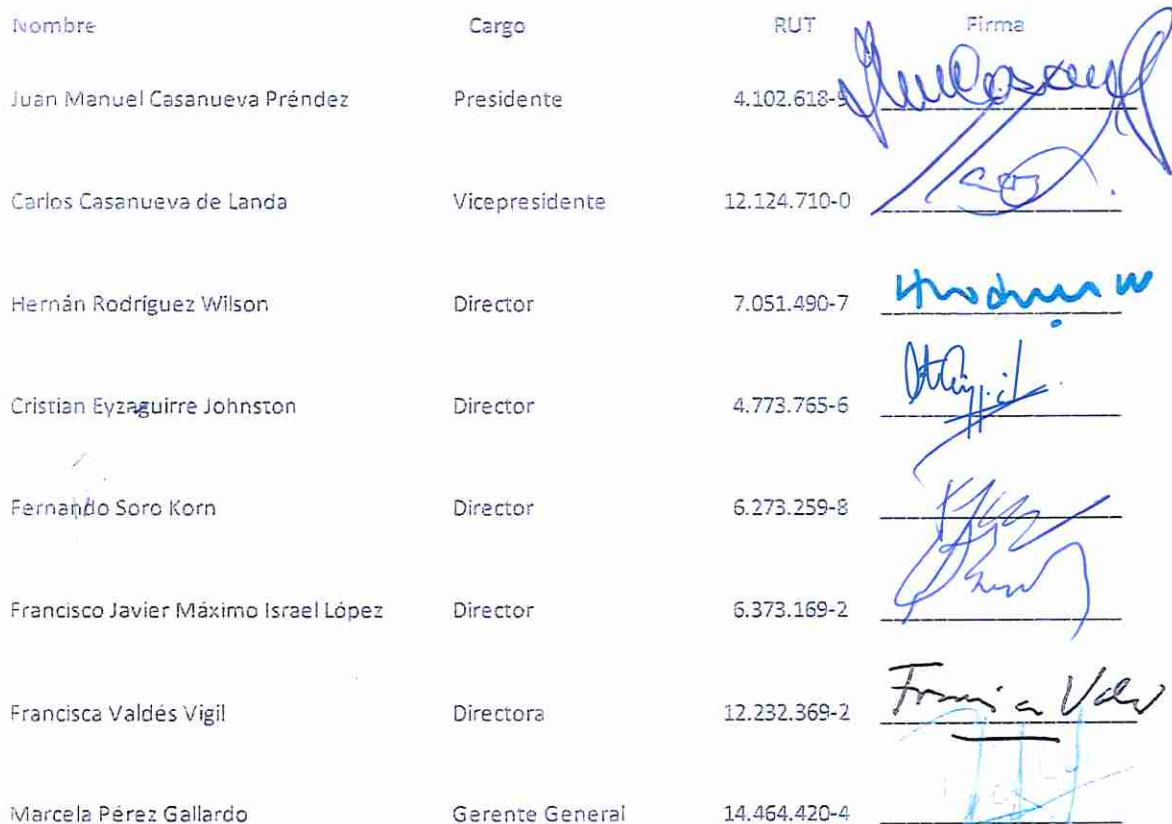 Nombre Cargo RUT Firma
Juan Manuel Casanueva Préndez Presidente 4.102.618-9
Carlos Casanueva de Landa Vicepresidente 12.124.710-0
Hernán Rodríguez Wilson Director 7.051.490-7
Cristian Eyzaguirre Johnston Director 4.773.765-6
Fernando Soro Korn Director 6.273.259-8
Francisco Javier Máximo Israel López Director 6.373.169-2
Francisca Valdés Vigil Directora 12.232.369-2
Marcela Pérez Gallardo Gerente General 14.464.420-4